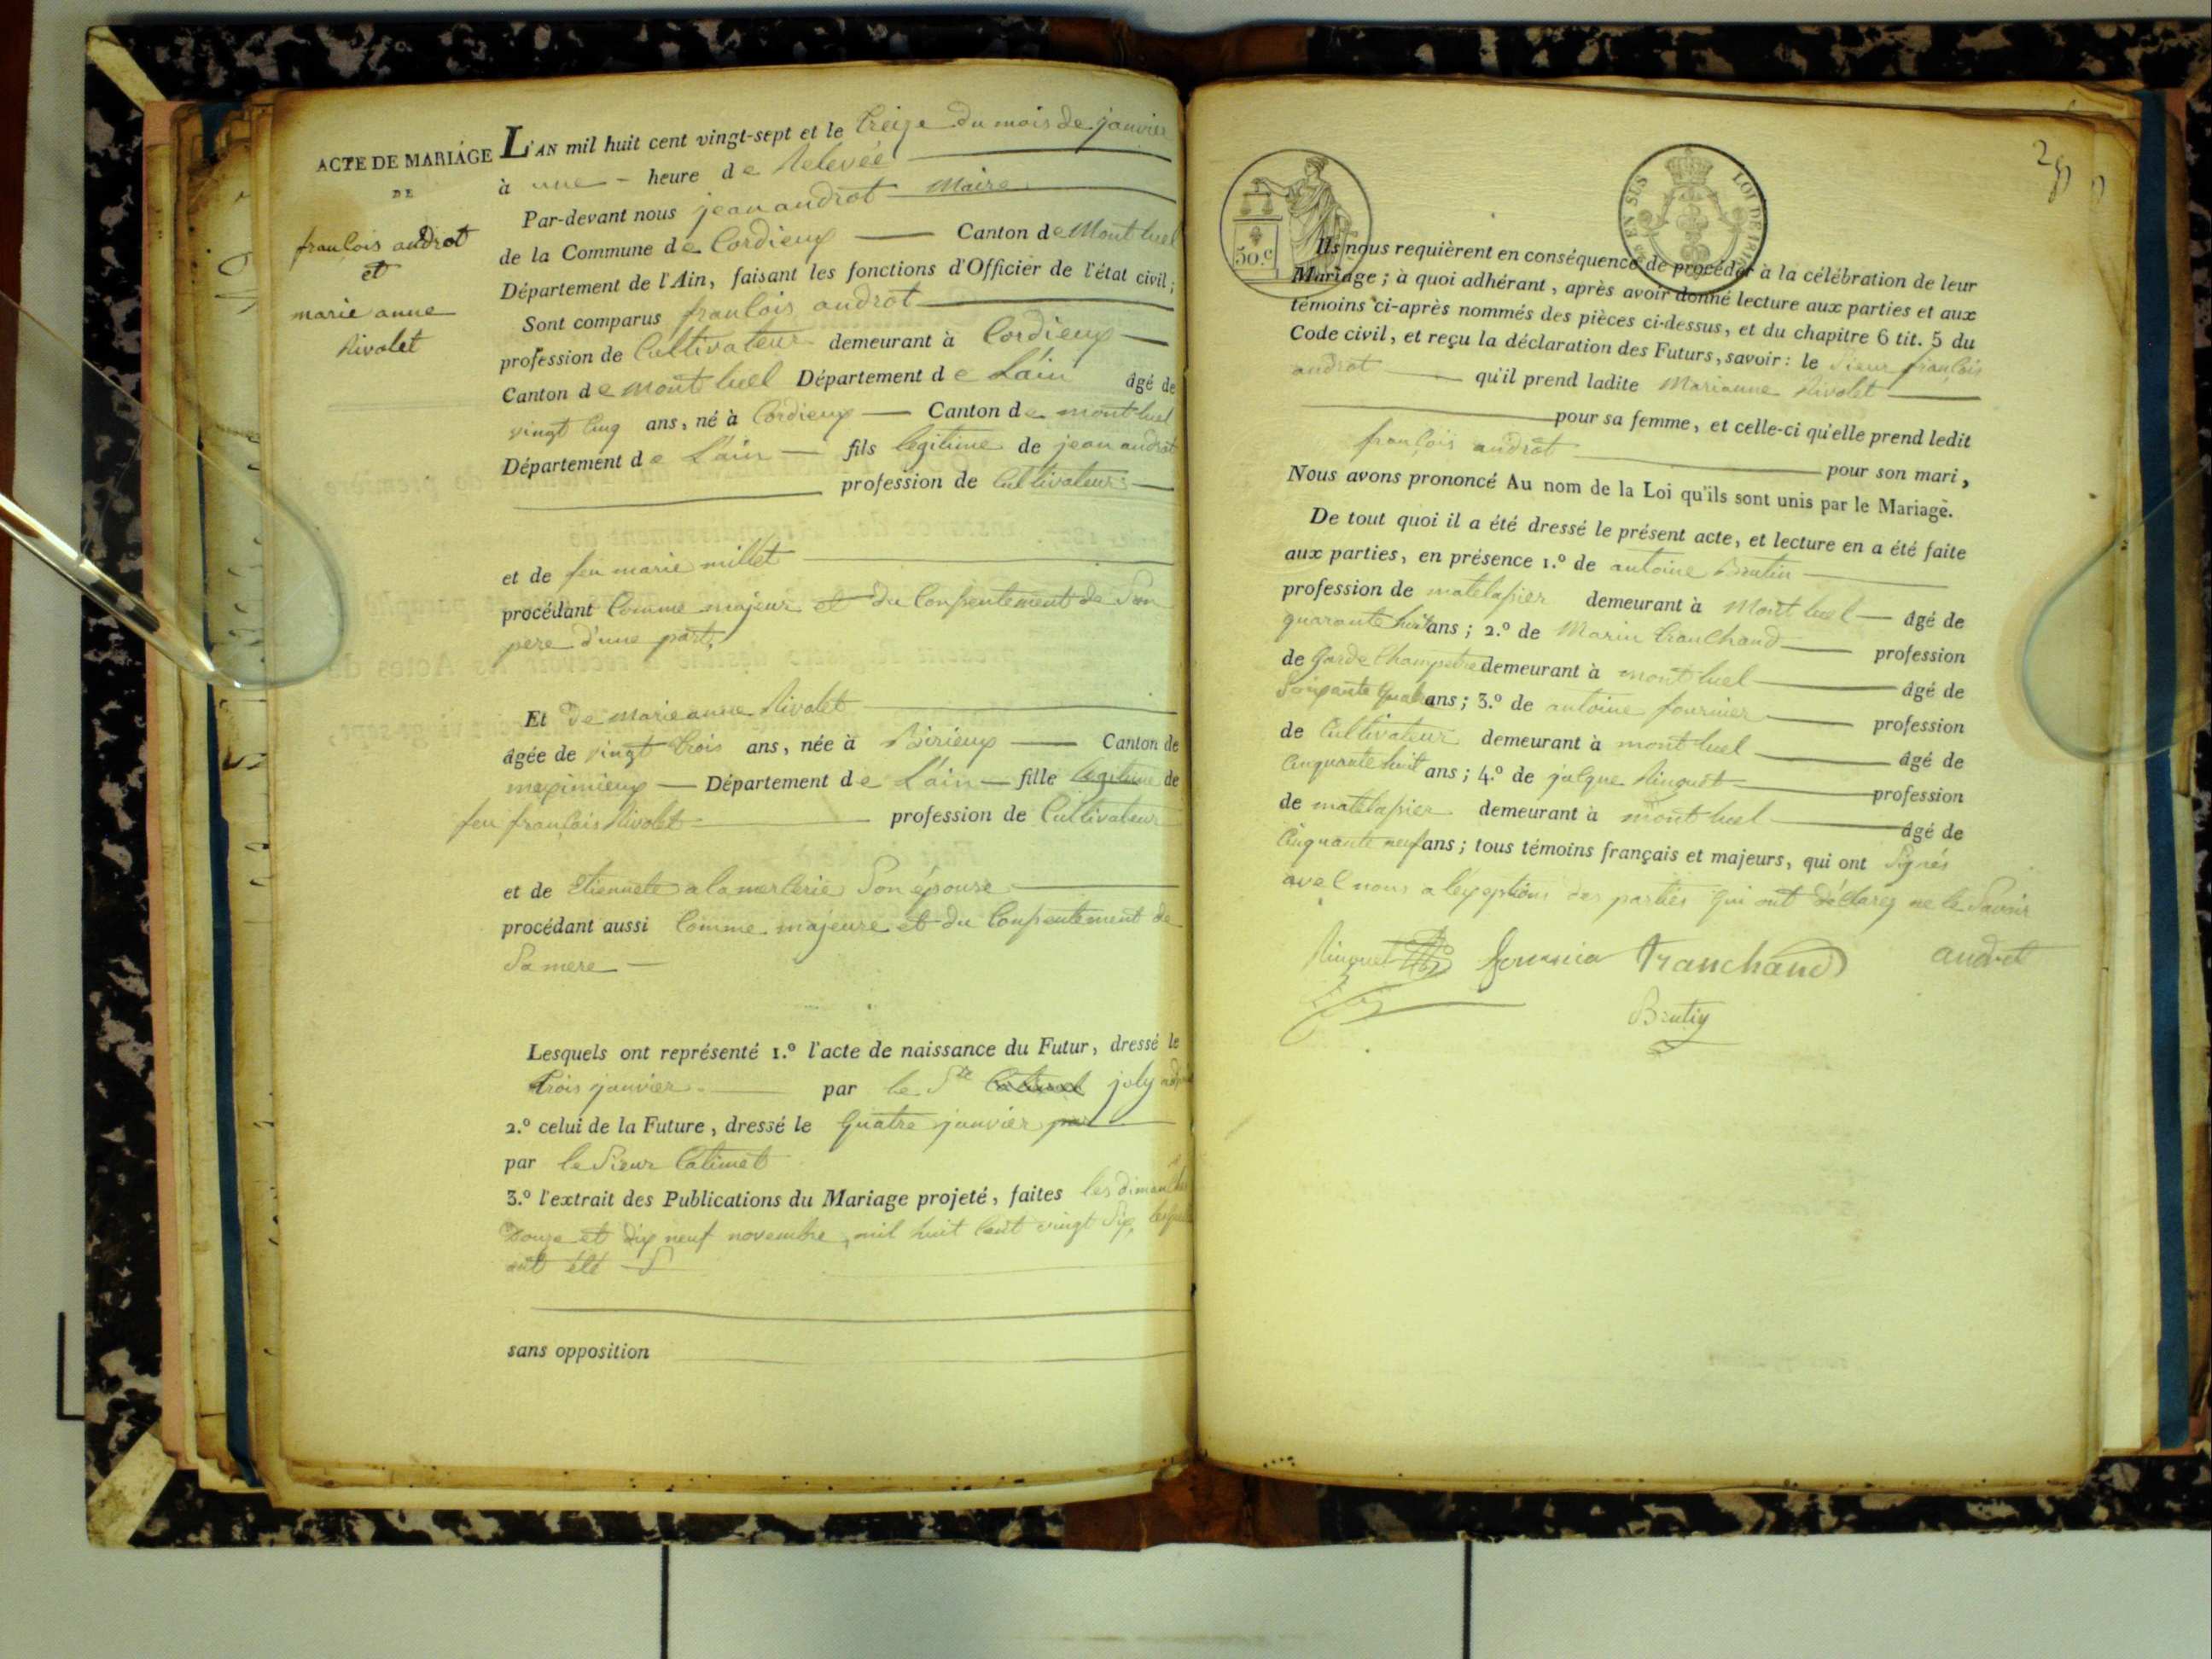 ACTE DE MARIAGE
DE
françois androt
et
marie anne
Rivolet
L'AN mil huit cent vingt-sept et le treize du mois de janvier
à une heure de Relevée
Par-devant nous jean androt Maire
de la Commune de Cordieux Canton de Montluel
Département de l'Ain, faisant les fonctions d'Officier de l'état civil;
Sont comparus françois androt
profession de Cultivateur demeurant à Cordieux
Canton de montluel Département de L'ain âgé de
vingt cinq ans, né à Cordieux Canton de montluel
Département de L'ain fils légitime de jean androt
profession de Cultivateurs
et de feu marie millet
procédant Comme majeur et du Consentement de Son
pere d'une part,
Et De marie anne Rivolet
âgée de vingt trois ans, née à Birieux Canton de
meximieux Département de L'ain fille légitime de
feu françois Rivolet profession de Cultivateur
et de Etiennete alamercerie Son épouse
procédant aussi Comme majeure et du Consentement de
Sa mere
Lesquels ont représenté 1.º l'acte de naissance du Futur, dressé le
trois janvier par le Sr joly
2.º celui de la Future, dressé le quatre janvier par
par le Sieur Catimet
3.º l'extrait des Publications du Mariage projeté, faites les dimanches
Douze et dix neuf novembre, mil huit cent vingt Six,
ont été
sans opposition
50.c
EN SUS LOI DE
Ils nous requièrent en conséquence de procéder à la célébration de leur
Mariage; à quoi adhérant, après avoir donné lecture aux parties et aux
témoins ci-après nommés des pièces ci-dessus, et du chapitre 6 tit. 5 du
Code civil, et reçu la déclaration des Futurs, savoir: le Sieur françois
androt qu'il prend ladite Marianne Rivolet
pour sa femme, et celle-ci qu'elle prend ledit
françois androt pour son mari,
Nous avons prononcé Au nom de la Loi qu'ils sont unis par le Mariage.
De tout quoi il a été dressé le présent acte, et lecture en a été faite
aux parties, en présence 1.º de antoine Brutin
profession de matelassier demeurant à Montluel âgé de
quarante huit ans; 2.º de Marin tranchand profession
de Garde Champetre demeurant à montluel âgé de
Soixante quatre ans; 3.º de antoine fournier profession
de Cultivateur demeurant à montluel âgé de
Cinquante huit ans; 4.º de jacque Ninguet profession
de matelassier demeurant à montluel âgé de
Cinquante neuf ans; tous témoins français et majeurs, qui ont Signés
avec nous a lexeption des parties qui ont déclarez ne le Savoir
Tranchand androt
Brutin